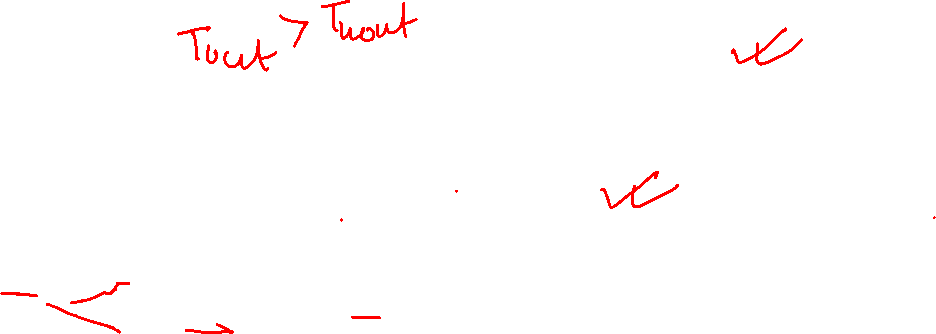 Tcout > Thout